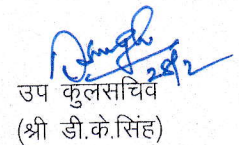 28/2
उप कुलसचिव
(श्री डी.के.सिंह)